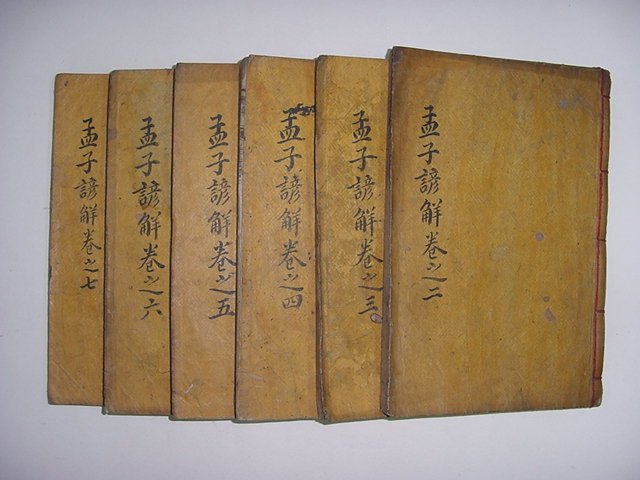 孟子諺解卷之二
孟子諺解卷之三
孟子諺解卷之四
孟子諺解卷之五
孟子諺解卷之六
孟子諺解卷之七